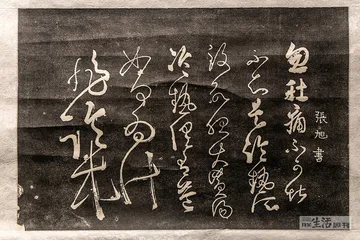 忽肚痛不可堪
張旭書
不知是冷熱所
致欲服大黃湯
冷熱俱有益
如何為計
生活周刊